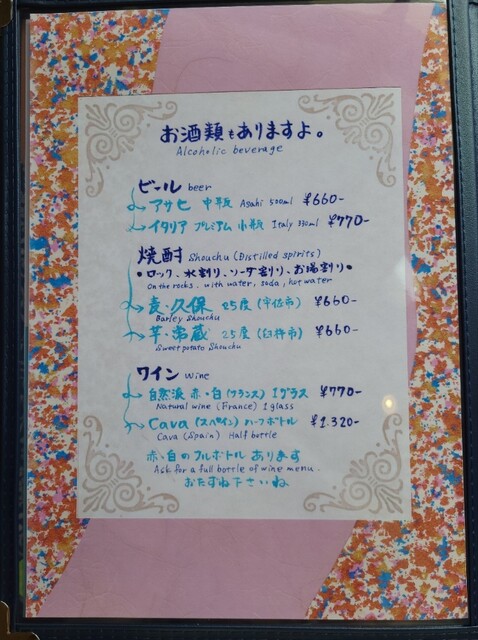 お酒類もありますよ。
Alcoholic beverage
ビール beer
アサヒ 中瓶 Asahi 500ml ¥660-
イタリア プレミアム 小瓶 Italy 330ml ¥770-
焼酎 Shouchu (Distilled spirits)
•ロック、水割り、ソーダ割り、お湯割り•
On the rocks. with water, soda, hot water
麦・久保 25度 (宇佐市) ¥660-
Barley Shouchu
芋・常蔵 25度 (臼杵市) ¥660-
Sweet potato Shouchu
ワイン wine
自然派 赤・白 (フランス) 1グラス ¥770-
Natural wine (France) 1 glass
Cava (スペイン) ハーフボトル ¥1.320-
Cava (Spain) Half bottle
赤・白のフルボトル あります
Ask for a full bottle of wine menu.
おたずね下さいね